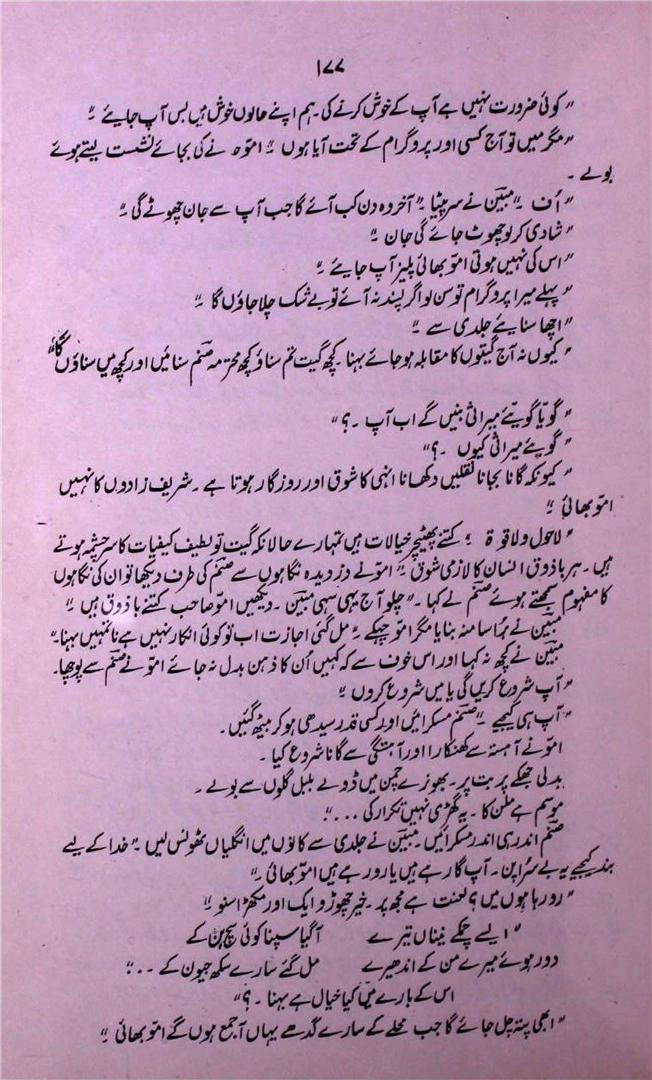 ۱۷۷
" کوئی ضرورت نہیں ہے آپ کے خوش کرنے کی۔ ہم اپنے حالوں خوش ہیں بس آپ جایئے ۔"
" مگر میں تو آج کسی اور پروگرام کے تحت آیا ہوں ۔" اموّ نے کی بجائے نشست لیتے ہوئے
بولے ۔
" اُف ۔" مبیّن نے سر پیٹا ۔" آخر وہ دن کب آئے گا جب آپ سے جان چھوٹے گی ۔"
" شادی کر لو چھوٹ جائے گی جان ۔"
" اس کی نہیں ہوتی اموّ بھائی پلیز آپ جایئے ۔"
" پہلے میرا پروگرام تو سن لو اگر پسند نہ آئے تو بے شک چلا جاؤں گا ۔"
" اچھا سنایئے جلدی سے ۔"
" کیوں نہ آج گیتوں کا مقابلہ ہو جائے بہنا۔ کچھ گیت تم سناؤ کچھ محترمہ صنم سنائیں اور کچھ میں سناؤں گا"
" گویا گویئے میراثی بنیں گے اب آپ ۔؟"
" گویئے میراثی کیوں ۔؟"
" کیونکہ گانا بجانا نقلیں دکھانا انہی کا شوق اور روزگار ہوتا ہے ۔ شریف زادوں کا نہیں
اموّ بھائی ۔"
" لاحول ولا قوۃ ۔ کتنے پھٹیچر خیالات ہیں تمہارے حالانکہ گیت تو لطیف کیفیات کا سرچشمہ ہوتے
ہیں ۔ ہر باذوق انسان کا لازمی شوق ۔" اموّ نے دزدیدہ نگاہوں سے صنم کی طرف دیکھا تو ان کی نگاہوں
کا مفہوم سمجھتے ہوئے صنم نے کہا ۔" چلو آج یہی سہی مبیّن ۔ دیکھیں اموّ صاحب کتنے باذوق ہیں ۔"
مبیّن نے بُرا سا منہ بنایا مگر اموّ چہکے ۔" مل گئی اجازت اب تو کوئی انکار نہیں ہے نا تمہیں بہنا۔"
مبیّن نے کچھ نہ کہا اور اس خوف سے کہ کہیں اُن کا ذہن بدل نہ جائے اموّ نے صنم سے پوچھا۔
" آپ شروع کریں گی یا میں شروع کروں ۔"
" آپ ہی کیجیے ۔" صنم مسکرائیں اور کسی قدر سیدھی ہو کر بیٹھ گئیں ۔
اموّ نے آہستہ سے کھنکارا اور آہستگی سے گانا شروع کیا ۔
بدلی جھکے پربت پر ۔ بھونرے چمن میں ڈوبے بلبل گلوں سے بولے ۔
موسم ہے ملن کا ۔ یہ گھڑی نہیں تکرار کی ....."
صنم اندر ہی اندر مسکرائیں ۔ مبیّن نے جلدی سے کانوں میں انگلیاں ٹھونس لیں ۔" خدا کے لیے
بند کیجیے یہ بے سُراپن ۔ آپ گا رہے ہیں یا رو رہے ہیں اموّ بھائی ۔"
" رو رہا ہوں میں ؟ لعنت ہے مجھ پر ۔ خیر چھوڑو ایک اور مکھڑا سنو ۔"
" ایسے چمکے نیناں تیرے آ گیا سپنا کوئی سچ بن کے
دور ہوئے میرے من کے اندھیرے مل گئے سارے سکھ جیون کے ..."
اس کے بارے میں کیا خیال ہے بہنا ۔؟"
" ابھی پتہ چل جائے گا جب محلے کے سارے گدھے یہاں آ جمع ہوں گے اموّ بھائی ۔"